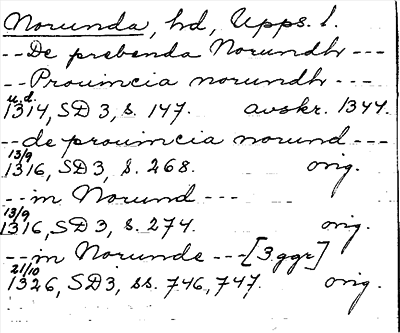 Norunda, hd, Upps. l.
--De prebenda Norundh ---
--Prouincia norundh ---
u.d.
1314, SD 3, s. 147. avskr. 1344.
--de prouincia norund ---
13/9
1316, SD3, s. 268. orig.
--in Norund ---
13/9
1316, SD3, s. 274. orig.
--in Norunde ---[3 ggr]
21/10
1326, SD3, ss. 746, 747. orig.